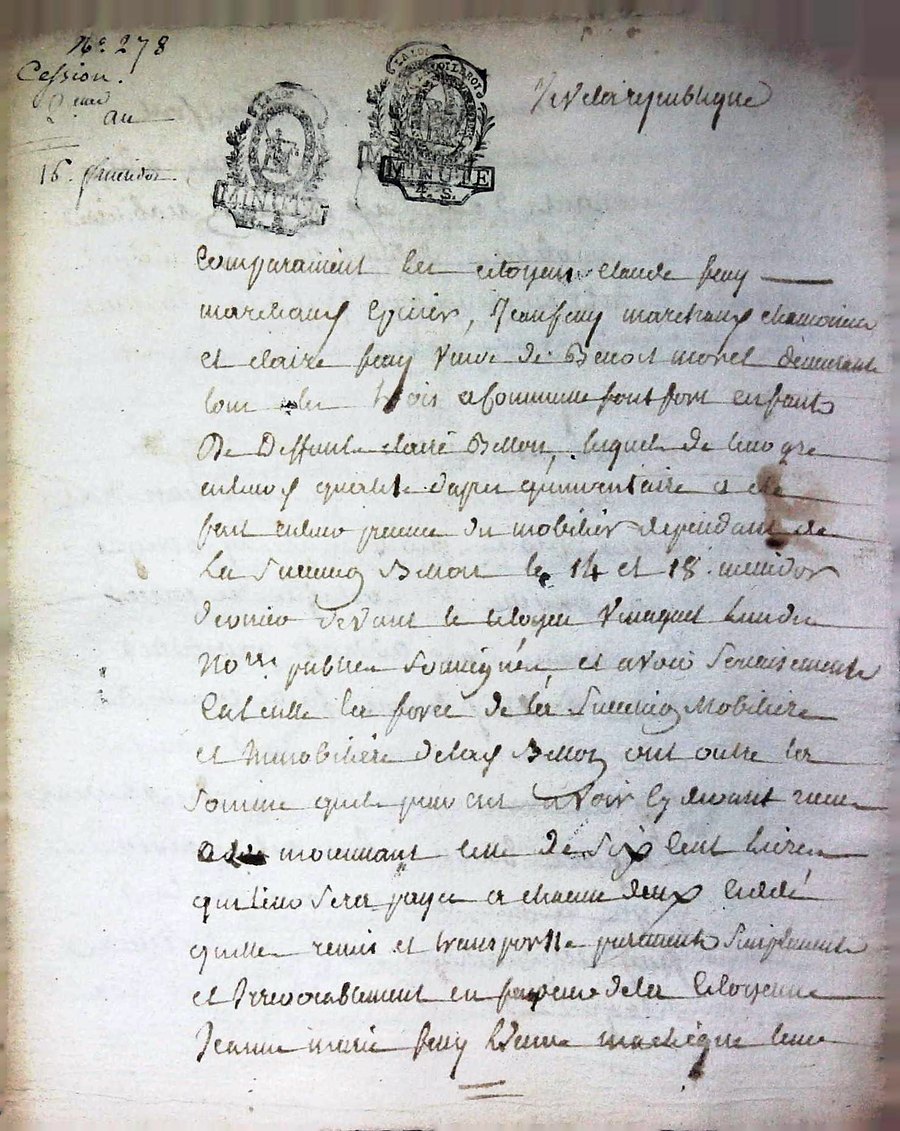 No. 278
Cession.
2eme an
16. fructidor
LA LOI
LA LOI LE ROI
MINUTE
MINUTE
4. S.
Vive la republique
Comparaissent les citoyens claude feuy
marchand Epicier, Jean feuy marchand chamoiseur
et claire feuy veuve de Benoit morel demeurant
tous les trois a commune enfants
De Deffunte claire Bellon, lesquels de leur gre
en leurs qualité dapres qu'inventaire a ete
fait en leur presence du mobilier dependant de
La Succession Bellon le 14 et 18. messidor
dernier devant le citoyen
Nore. public Soussignés, et avoir serieusement
calculle les forces de la Succession Mobiliere
et Immobiliere de lad Bellon ont outre les
Somme quils peuvent avoir cy devant recue
moiennant celle de Six Cent Livres
qui leur sera payee a chacun deux Cedde
quitte remis et transporte purement Simplement
et Irrevocablement en faveur de la Citoyenne
Jeanne marie feuy leur